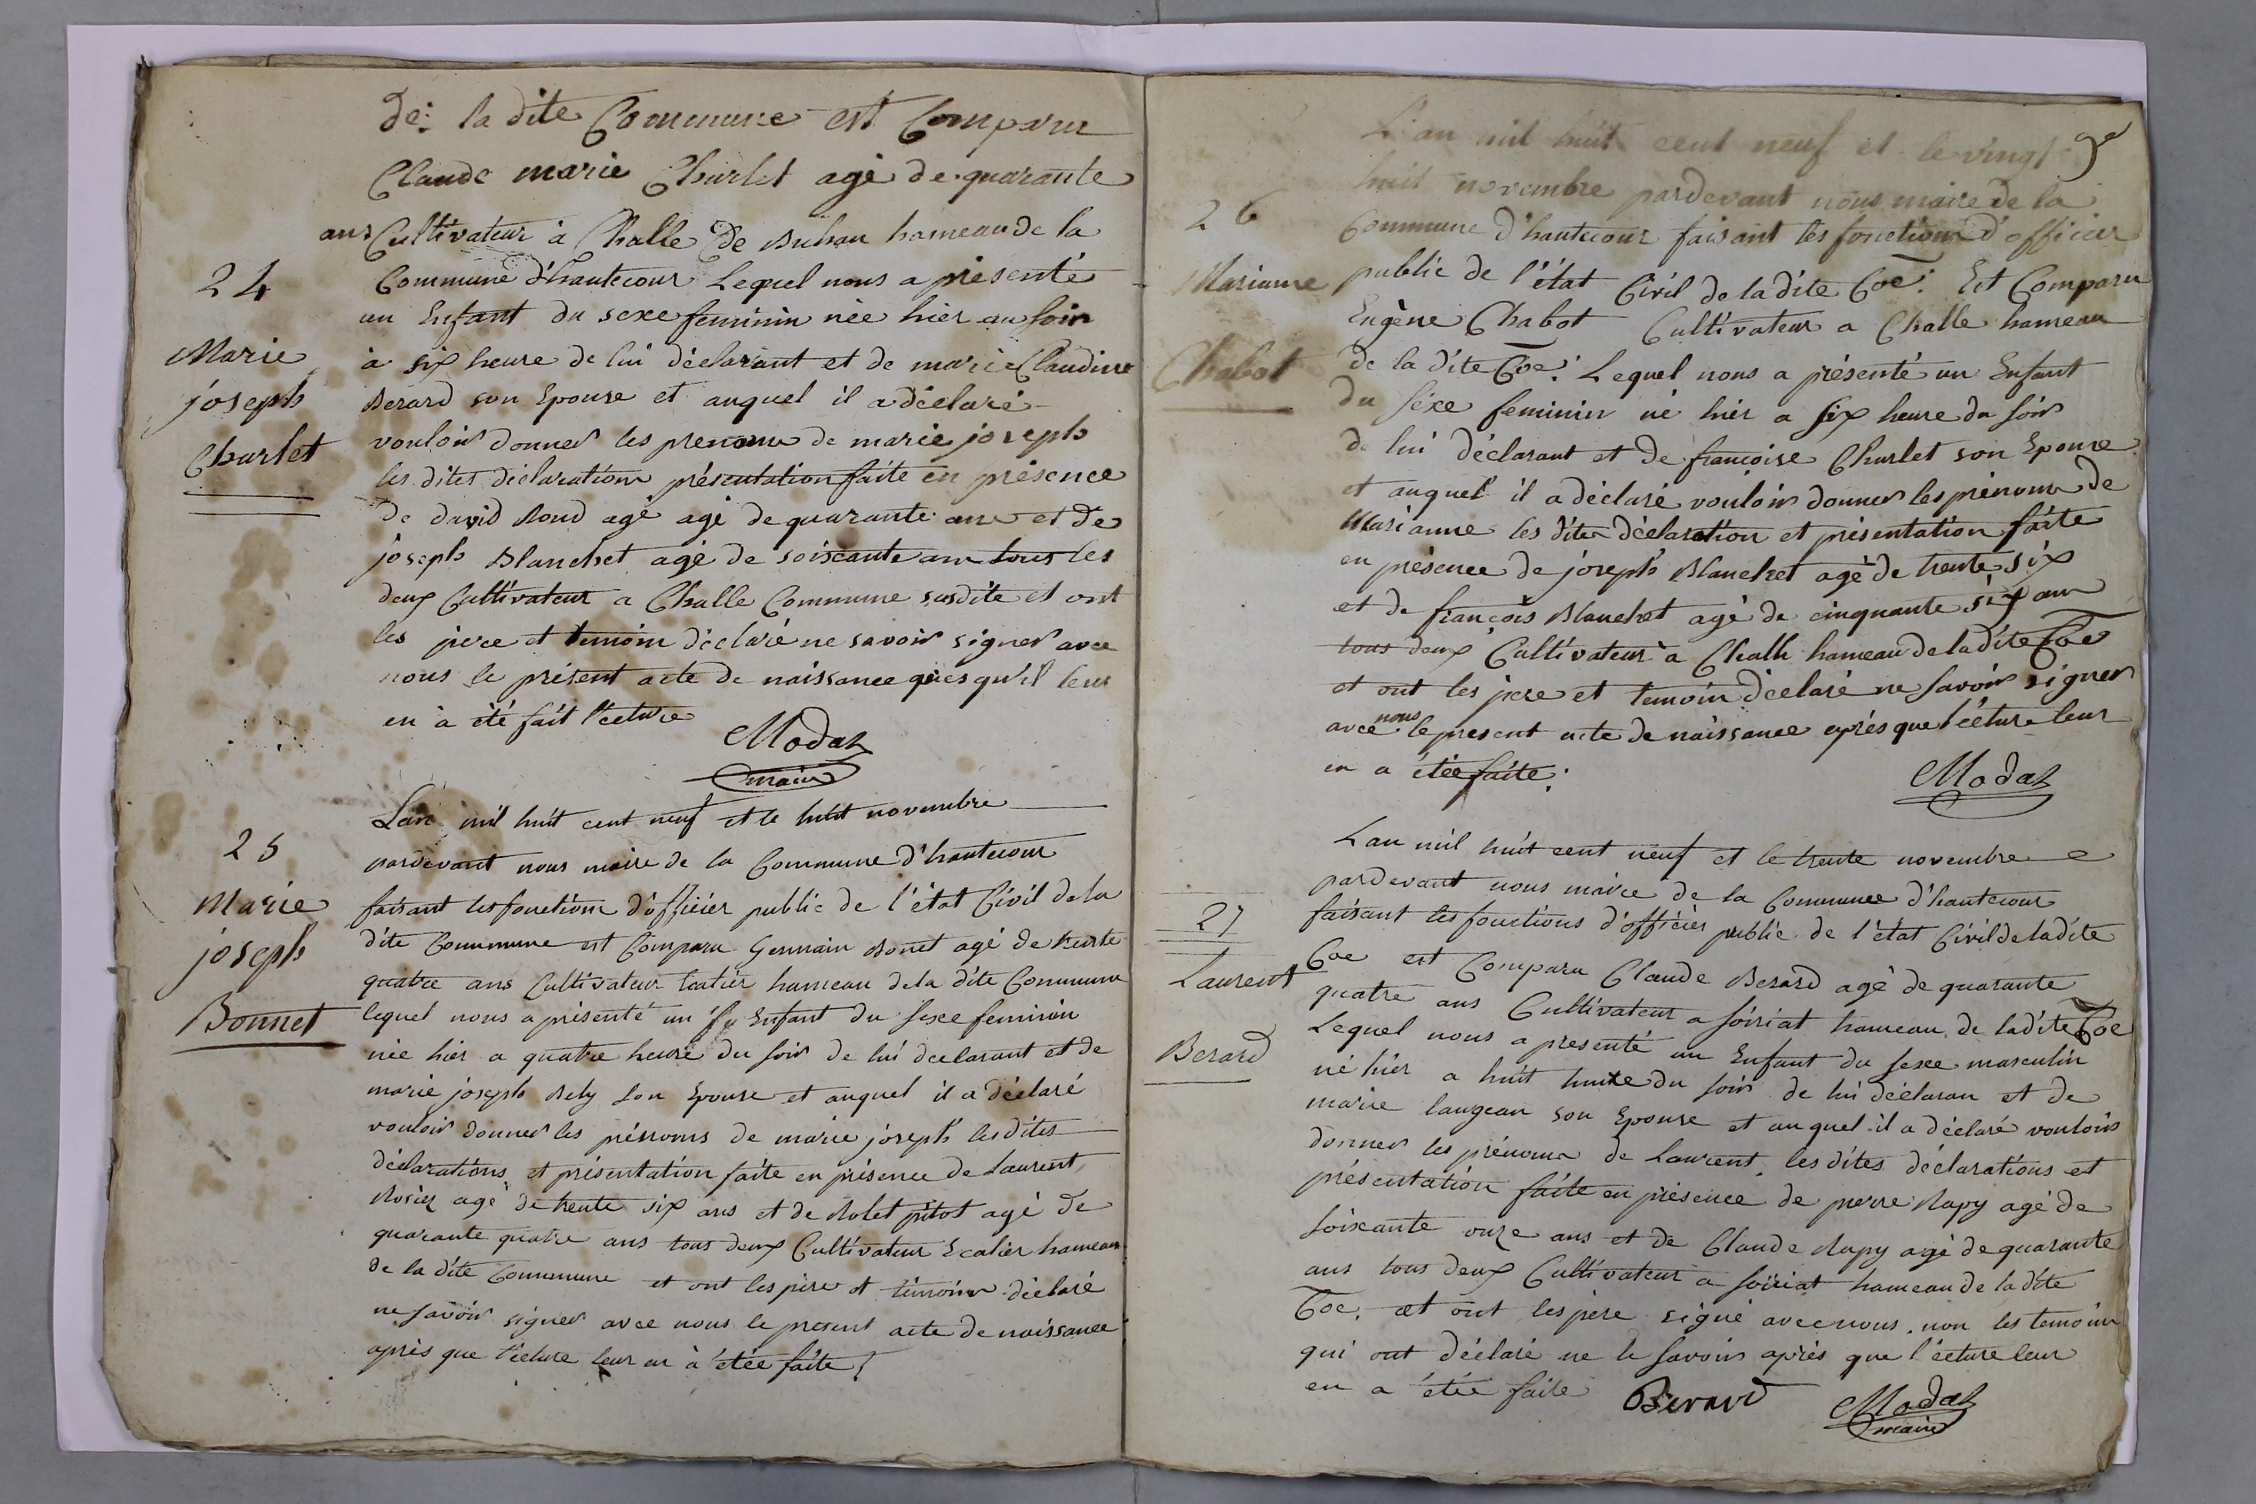 de: la dite Commune est Comparu
Claude marie Churlet agé de quarante
ans Cultivateur à Challe de Buhan hameau de la
24
Commune d'hautecour Lequel nous a présenté
un Enfant du sexe feminin née hier au soir
Marie
à six heure de lui déclarant et de marie Claudine
joseph
Berard son Epouse et auquel il a déclaré
Churlet
vouloir donner les prenoms de marie joseph
les dites déclaration présentation faite en présence
de david Rond agé agé de quarante ans et de
joseph Blanchet agé de soiscante ans tous les
deux Cultivateur a Challe Commune susdite et ont
les pere et temoin déclaré ne savoir signer avec
nous le présent acte de naissance qu'il leur
en à été fait l'ecture
Modaz
maire
L'an mil huit cent neuf et le huit novembre
25
pardevant nous maire de la Commune d'hautecour
Marie
faisant les fonction d'officier public de l'état Civil de la
joseph
dite Commune est Comparu Germain Bonet agé de trente
quatre ans Cultivateur hameau de la dite Commune
Bonnet
lequel nous a présenté un Enfant du sexe feminin
née hier a quatre heure du soir de lui declarant et de
marie joseph Rely son Epouse et auquel il a déclaré
vouloir donner les prénoms de marie joseph les dites
déclarations et présentation faite en présence de Laurent
Rosier agé de trente six ans et de Rolet pitot agé de
quarante quatre ans tous deux Cultivateur Ecalier hameau
de la dite Commune et ont les père et témoins déclaré
ne savoir signer avec nous le present acte de naissance
après que l'ecture leur en à étée faite
L'an mil huit cent neuf et le vingt
huit novembre pardevant nous maire de la
26
Commune d'hautecour faisant les fonctions d'officier
Marianne
public de l'état Civil de la dite Coe: Est Comparu
Eugène Chabot Cultivateur a Challe hameau
Chabot
de la dite Coe: Lequel nous a présenté un Enfant
du séxe feminin né hier a six heure du soir
de lui déclarant et de françoise Churlet son Epouse
et auquel il a déclaré vouloir donner les prénoms de
Marianne les dites déclaration et présentation faite
en présence de joseph Blanchet agé de trente six
et de françois Blanchet agé de cinquante six ans
tous deux Cultivateur a Challe hameau de la dite Coe
et ont les pere et temoin déclaré ne savoir signer
avec nous le present acte de naissance après que l'écture leur
en a étée faite:
Modaz
L'an mil huit cent neuf et le trente novembre
pardevant nous maire de la Commune d'hautecour
27
faisant les fonctions d'officier public de l'état Civil de la dite
Laurent
Coe est Comparu Claude Berard agé de quarante
quatre ans Cultivateur a soiriat hameau de la dite Coe
Berard
Lequel nous a presenté un Enfant du sexe masculin
né hier a huit heure du soir de lui déclaran et de
marie laugeau son Epouse et auquel il a déclaré vouloir
donner les prénoms de Laurent, les dites déclarations et
présentation faite en présence de pierre Rapy agé de
soixante onze ans et de Claude Rapy agé de quarante
ans tous deux Cultivateur a soiriat hameau de la dite
Coe. et ont les père signé avec nous. non les temoin
qui ont déclaré ne le savoir après que l'écture leur
en a étée faite
Berard
Modaz
maire